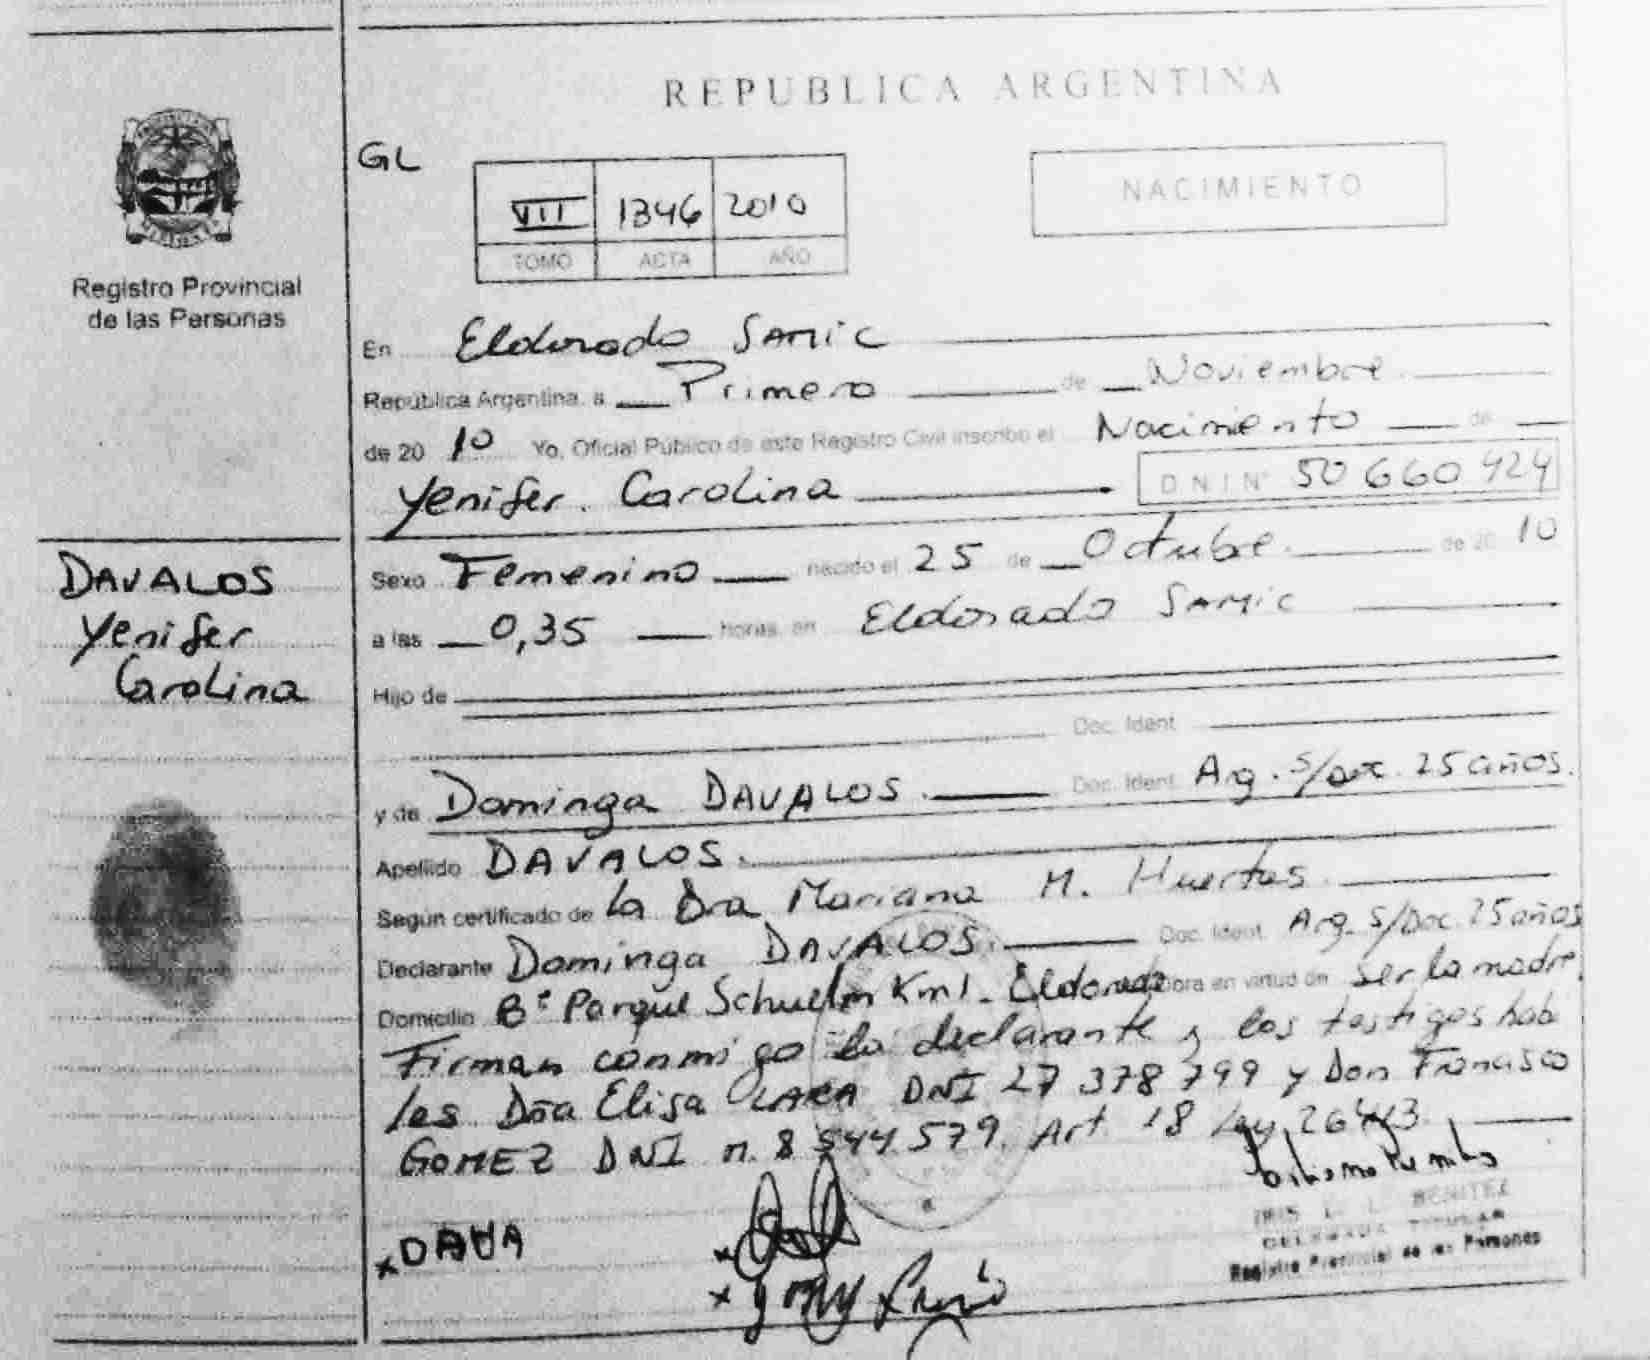 REPUBLICA ARGENTINA
GL
VII 1346 2010
TOMO ACTA AÑO
NACIMIENTO
Registro Provincial
de las Personas
En Eldorado SAMIC
República Argentina, a Primero de Noviembre
de 2010 Yo, Oficial Público de este Registro Civil inscribo el Nacimiento de
Yenifer. Carolina DNI Nº 50 660 424
Sexo Femenino nacido el 25 de Octubre de 2010
a las 0,35 horas, en Eldorado SAMIC
Hijo de
Doc. Ident.
y de Dominga DAVALOS. Doc. Ident. Arg. S/Doc. 25 años.
Apellido DAVALOS.
Según certificado de la Dra Mariana M. Huertas
Declarante Dominga DAVALOS. Doc. Ident. Arg. S/Doc. 25 años
Domicilio Bº Parque Km 1 - Eldorado Obra en virtud de ser la madre.
Firman conmigo la declarante y los testigos hábi
les Doña Elisa LARA DNI 27 378 799 y Don Francisco
GOMEZ DNI n. 8 544 579. Art. 18 Ley 26413
DAVALOS
Yenifer
Carolina
x DAVA
x
x
IRIS L. L. BENITEZ
DELEGADA TITULAR
Registro Provincial de las Personas